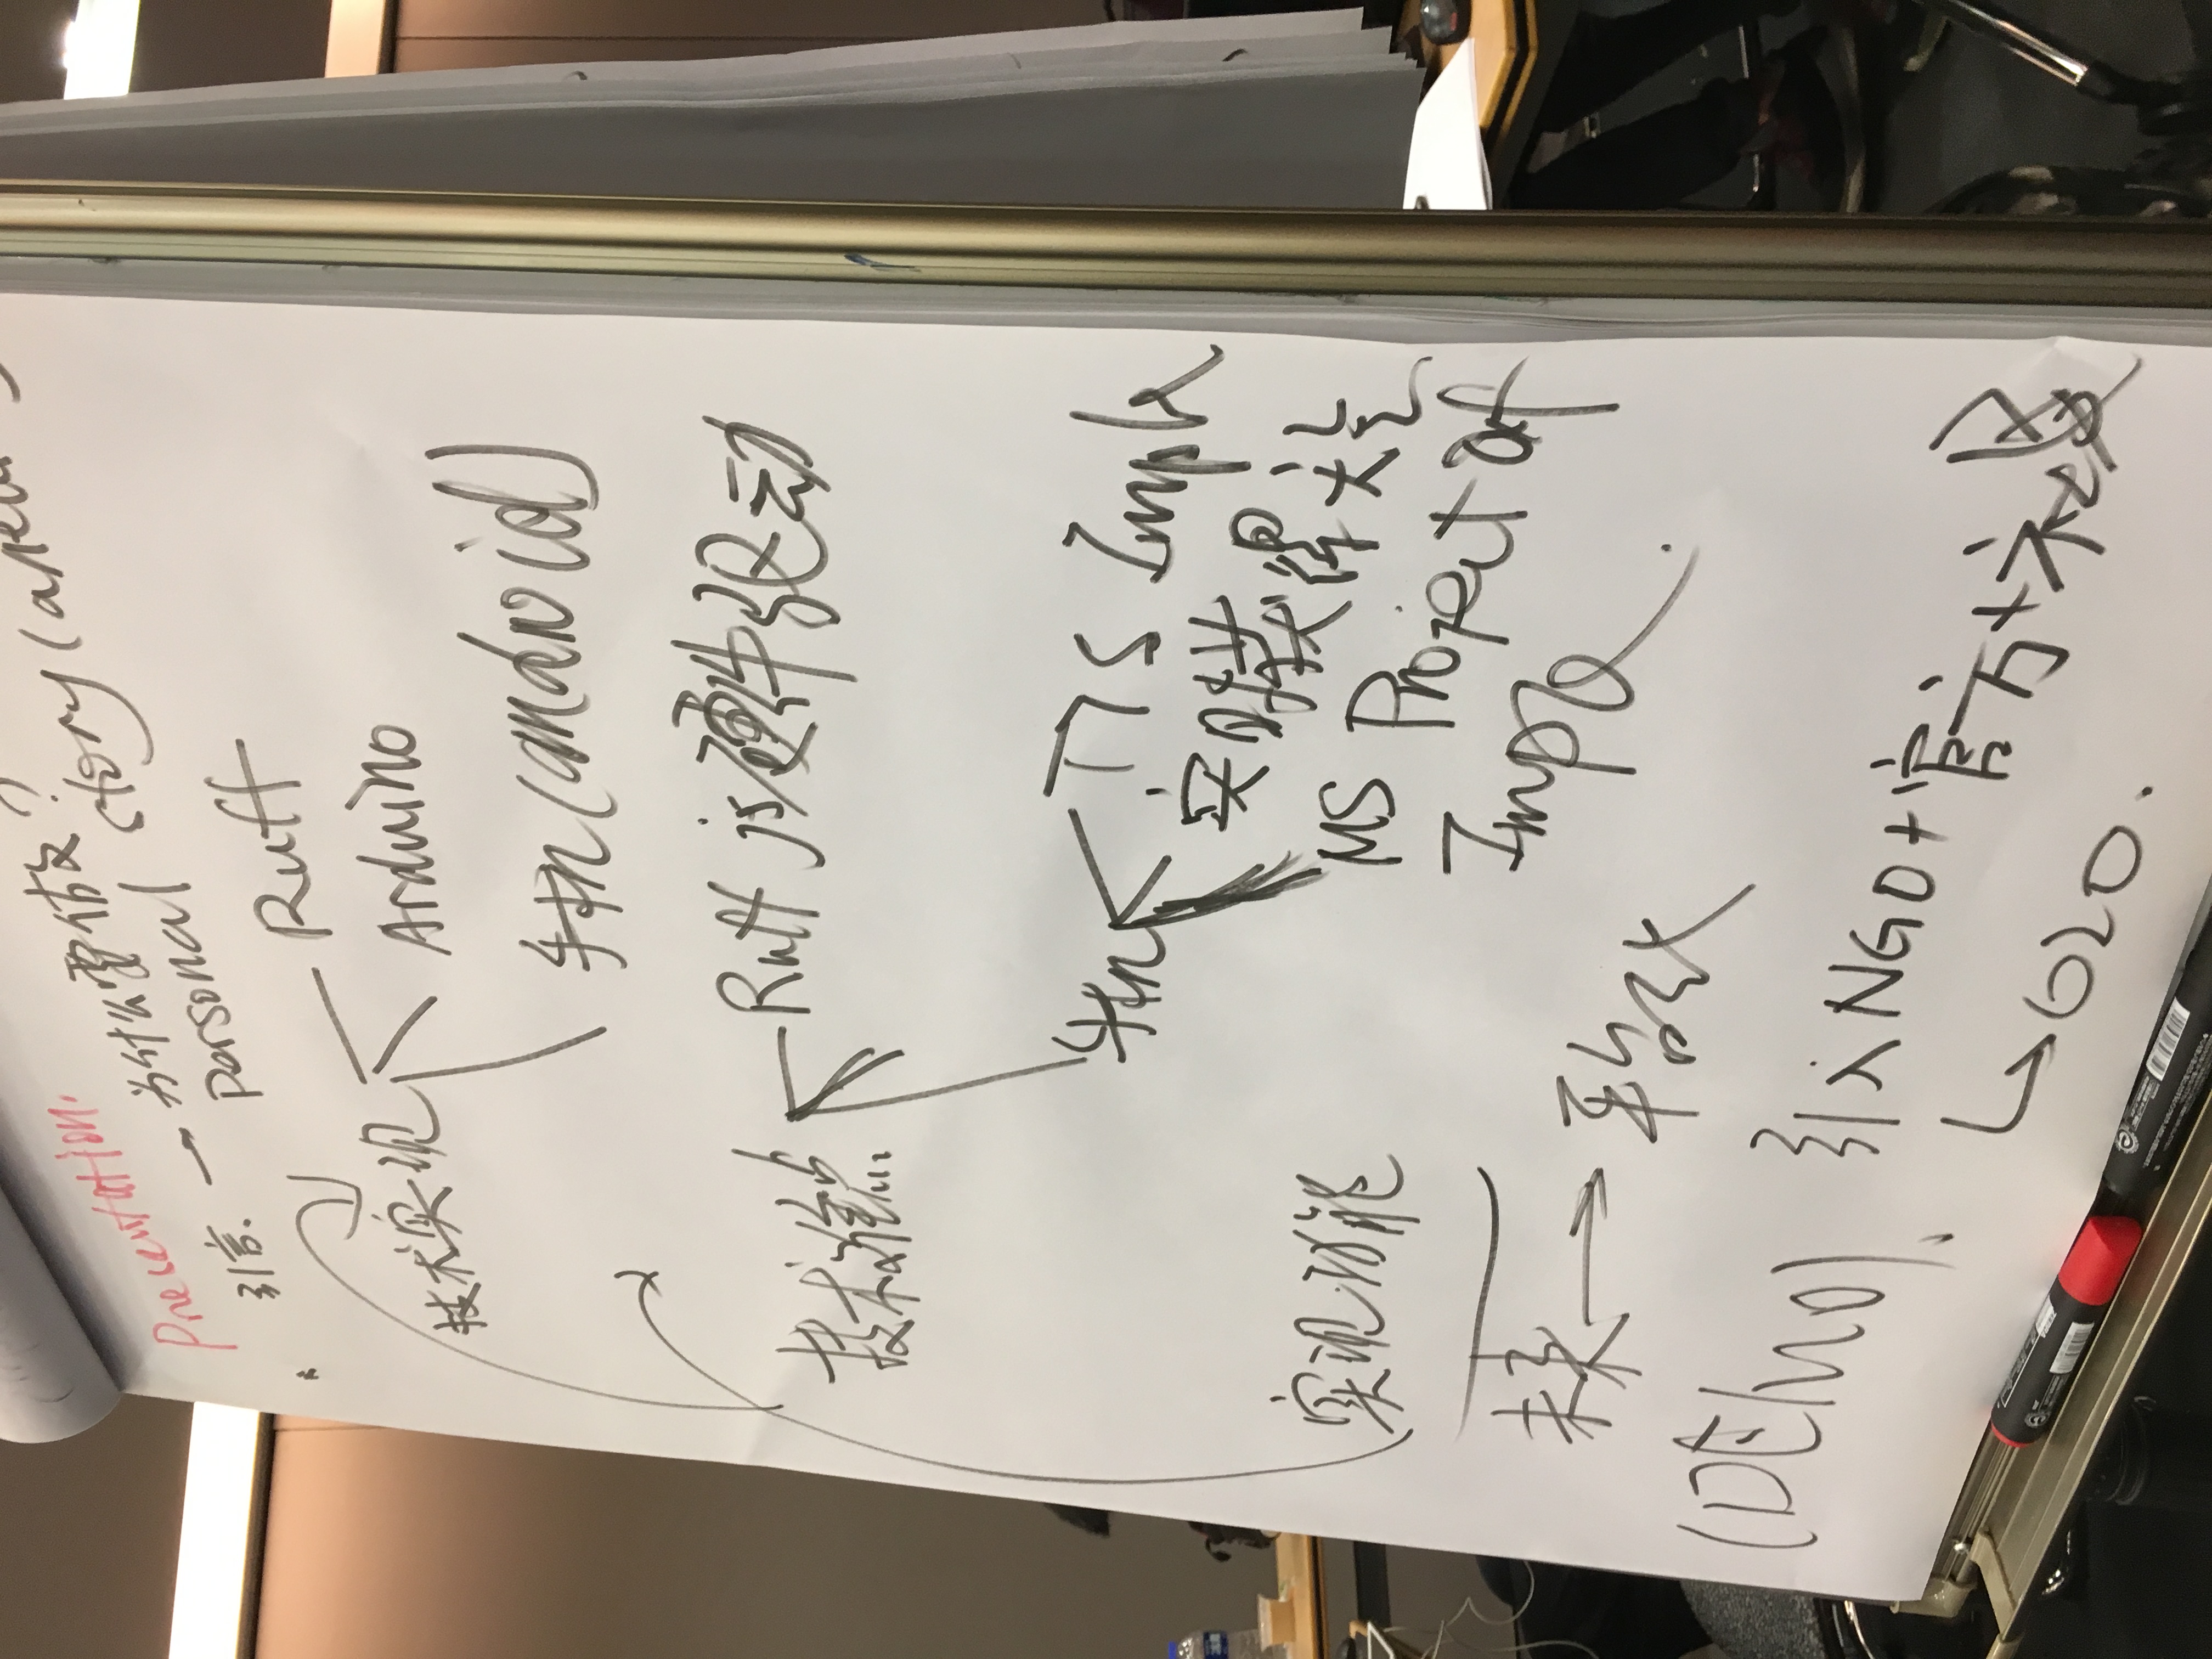 Presentation.
引言. → 为什么要做?
Personal story (
技术实现
Ruff
Arduino
手机(android)
技术难点
Ruff js硬件驱动
手机
TTS Imple
实时获得天气
MS Project of
实现功能
未来 → 平台
(DEMO).
引入NGO+官方+